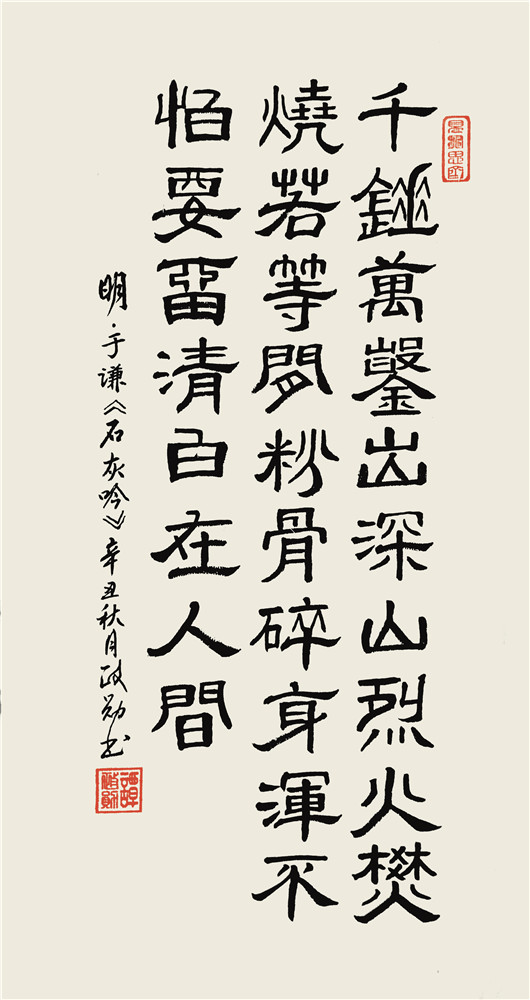 千錘萬鑿出深山烈火焚
燒若等閒粉骨碎身渾不
怕要留清白在人間
明·于谦《石灰吟》辛丑秋月政勋书